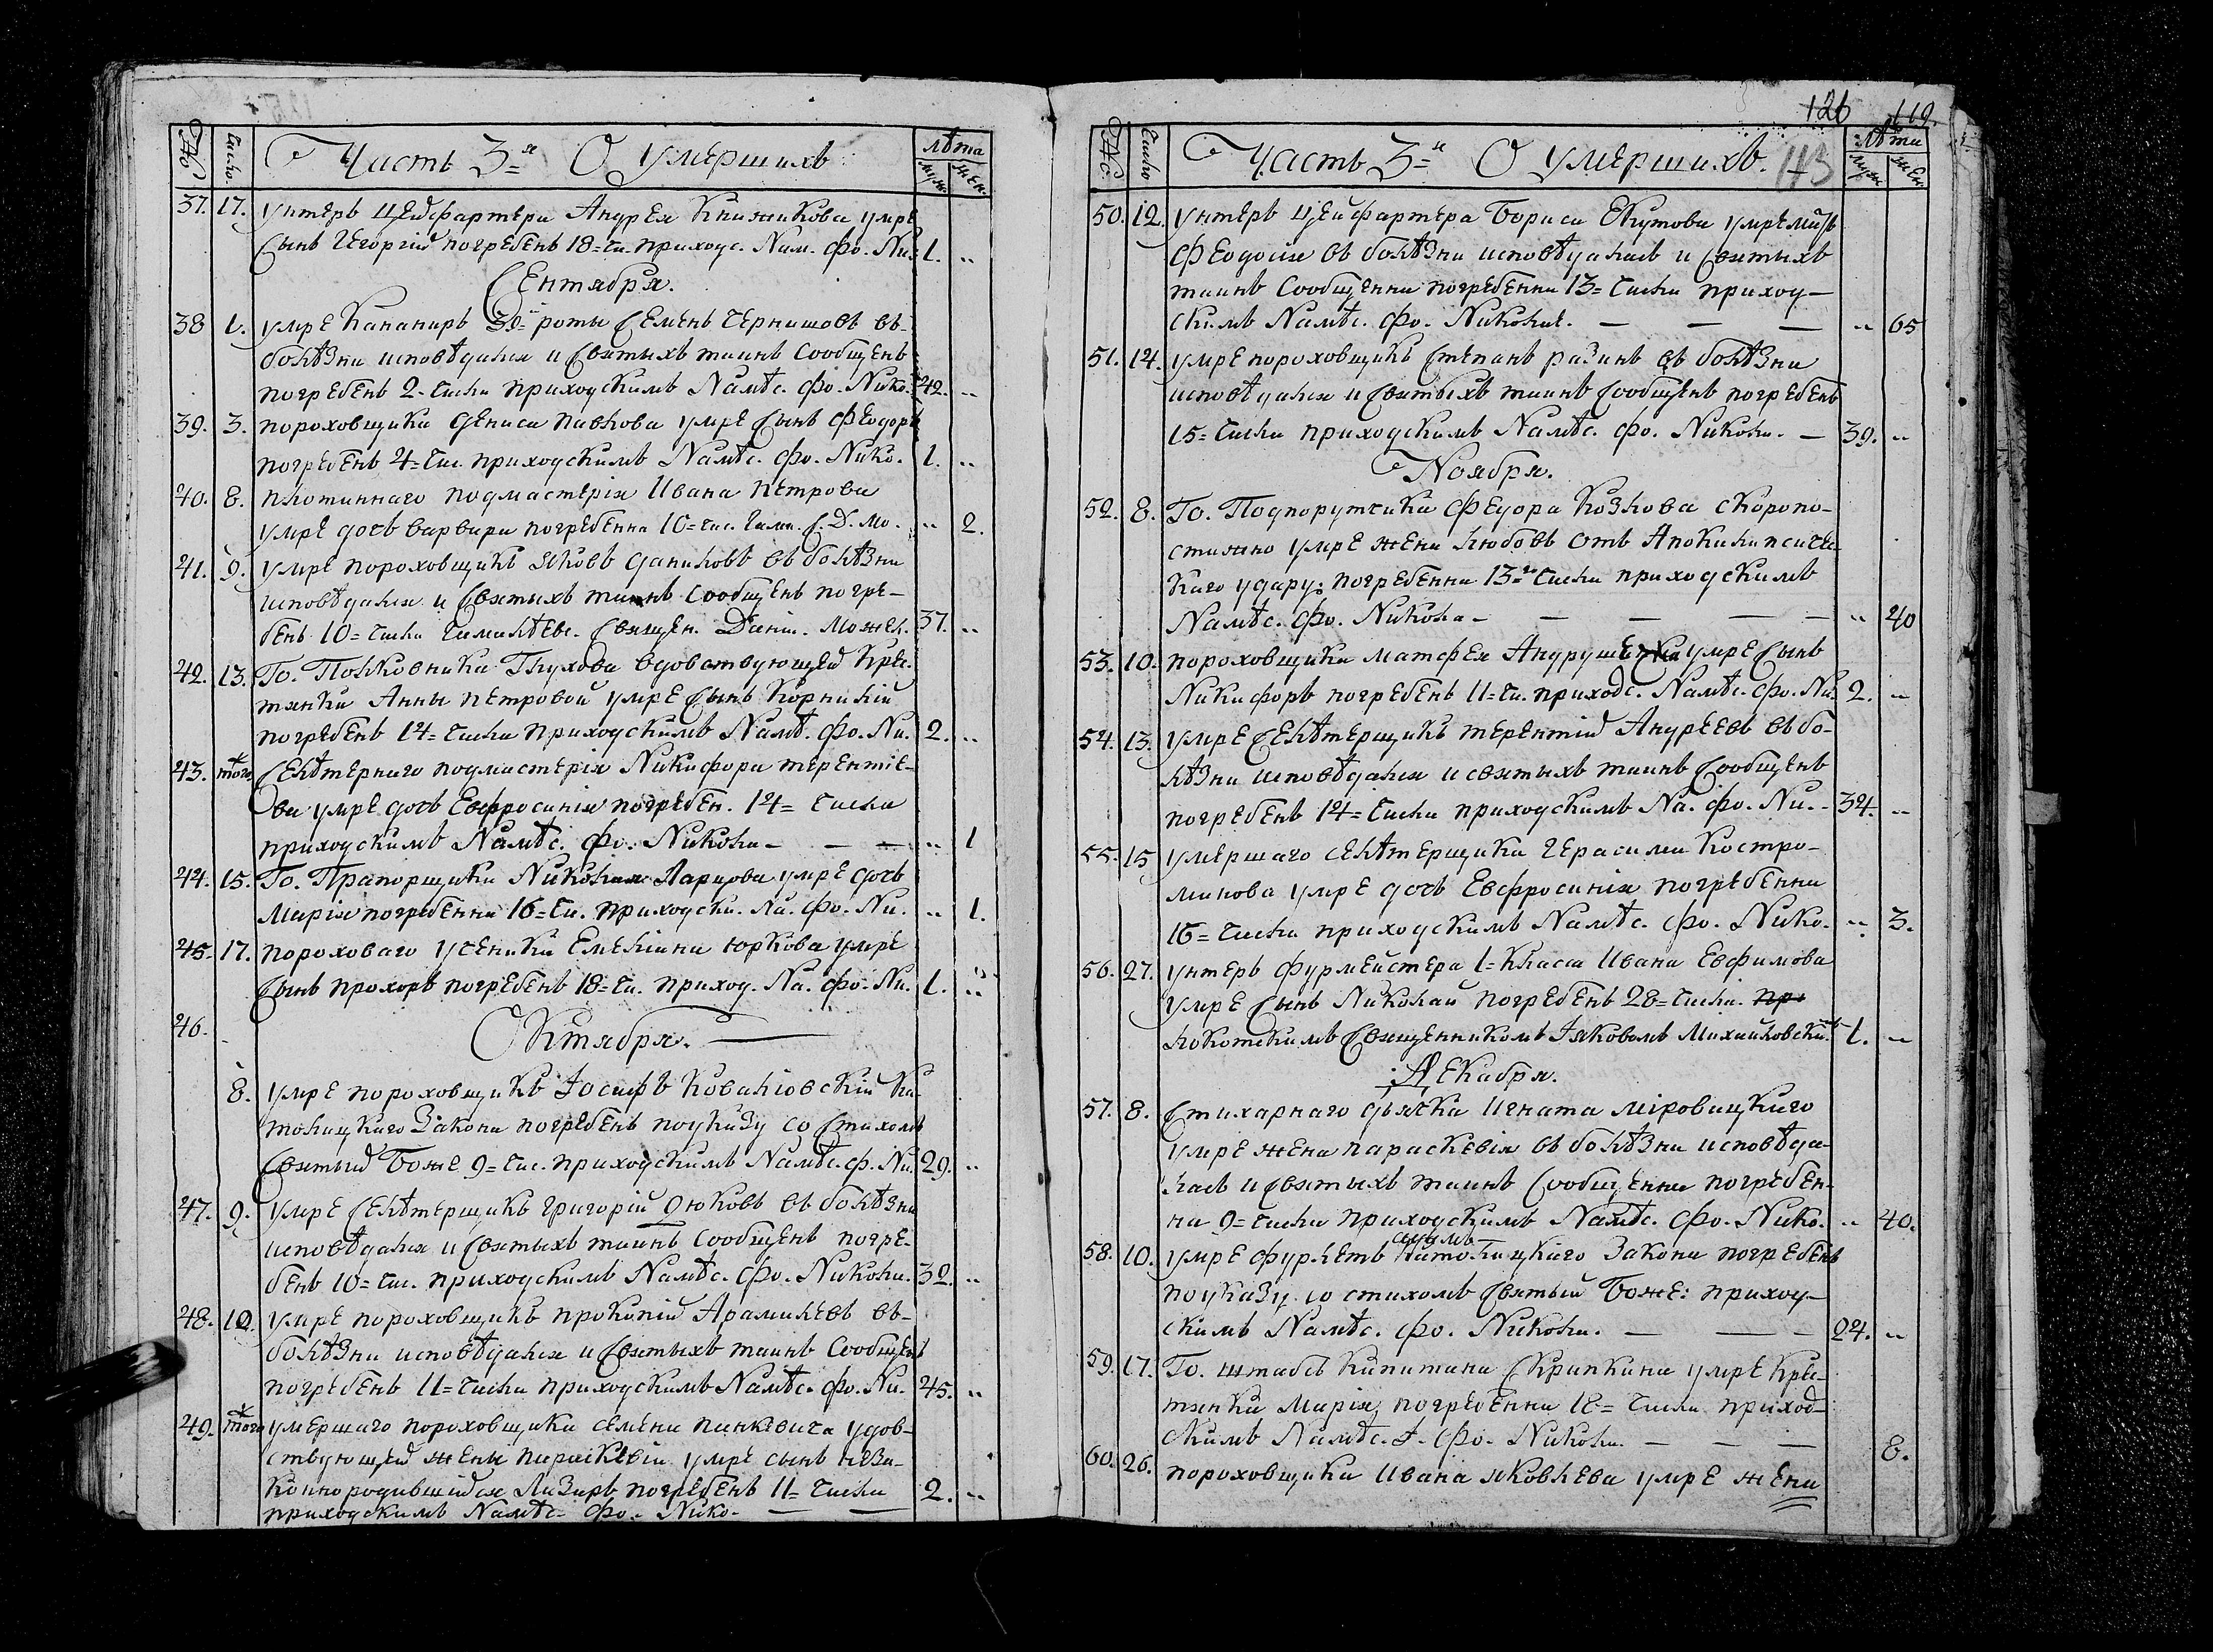 №
Число.
Часть 3=я О умершихъ
лѣта
муж.
жен.
37. 17. унтеръ цейхвартера Андрея Книжникова умре
сынъ Георгій погребенъ 18= чи. приходс. Нам. Фо. Ни. 1. „
Сентября.
38 1. умре Канониръ роты Семенъ Чернишовъ въ
болѣзни исповѣдался и Святыхъ таинъ Сообщенъ
погребенъ 2- числа приходскимъ Намѣс. Фо. Нико. 42. „
39. 3. пороховщика Дениса Павлова умре Сынъ Феодоръ
погребенъ 4= чис. приходскимъ Намѣс. Фо. Нико. 1. „
40. 8. плотиннаго подмастерія Ивана Петрова
умре дочь варвара погребенна 10= чис. С. Д. Мо. „ 2.
41. 9. умре пороховщикъ Яковъ Даниловъ въ болѣзни
исповѣдался и Святыхъ таинъ Сообщенъ погре-
бенъ 10= числа Священ. Даніи. Можел. 37. „
42. 13. Го. Полковника Глухова вдовствующей Крес-
тянки Анны Петровой умре Сынъ Корнилій
погребенъ 14= числа приходскимъ Намѣ. Фо. Ни. 2. „
43. того Селѣтернаго подмастерія Никифора терентіе-
ва умре дочь Евфросинія погребен. 14= числа
приходскимъ Намѣс. Фо. Никола - - - „ 1
44. 15. Го. Прапорщика Николая Ларіова умре дочь
Марія погребенна 16= чи. приходски. На. Фо. Ни. „ 1.
45. 17. пороховаго ученика Емеліана Юркова умре
Сынъ прохоръ погребенъ 18= чи. приход. На. Фо. Ни. 1. „
46. Октября.
8. умре пороховщикъ Іосифъ Ковалювскій Ка-
толицкаго Закона погребенъ поуказу со Стихомъ
Святый Боже 9= чис. приходскимъ Намѣс. Ф. Ни. 29. „
47. 9. умре Селѣтерщикъ григорій Дюковъ въ болѣзни
исповѣдался и Святыхъ таинъ Сообщенъ погре-
бенъ 10= чис. приходскимъ Намѣс. Фо. Никола. 32. „
48. 10. умре пороховщикъ прокопій Арамилевъ въ-
болѣзни исповѣдался и Святыхъ таинъ Сообщенъ
погребенъ 11= числа приходскимъ Намѣс. Фо. Ни. 45. „
49. того умершаго пороховщика семена Пинкевича удов-
ствующей жены параскевіи умре сынъ неза-
коннородившійся Лазарь погребенъ 11= числа 2. „
приходскимъ Намѣс. Фо. Нико- - -
126
119.
№
Число
Часть 3=я О умершихъ.
113
лѣта
муж.
жен.
50. 12. унтеръ цейхвартера Бориса Екутова умре мать
Феодосія въ болѣзни исповѣдалась и Святыхъ
таинъ Сообщенна погребенна 13= числа приход-
скимъ Намѣс. Фо. Николае. - - - „ 65
51. 14. умре пороховщикъ Степанъ разинъ въ болѣзни
исповѣдался и Святыхъ таинъ Сообщенъ погребенъ
15= числа приходскимъ Намѣс. Фо. Никола. - 39. „
Ноября.
52. 8. Го. Подпорутчика Федора Козлова скоропо-
стижно умре жена Любовъ отъ Апокилипсичес-
каго удару; погребенна 13=го числа приходскимъ
Намѣс. Фо. Никола - - - - „ 40
53. 10. пороховщика Матфея Андрушенка умре Сынъ
Никифоръ погребенъ 11= чи. приходс. Намѣс. Фо. Ни. 2. „
54. 13. умре Селѣтерщикъ терентій Андреевъ въ бо-
лѣзни исповѣдался и святыхъ таинъ Сообщенъ
погребенъ 14= числа приходскимъ На. Фо. Ни. - 34. „
55. 15 умершаго селѣтерщика Герасима Костро-
минова умре дочь Евфросинія погребенна
16= числа приходскимъ Намѣс. Фо. Нико. „ 3.
56. 27. унтеръ фурмейстера 1= класа Ивана Евфимова
умре Сынъ Николай погребенъ 28= числа. при
локотскимъ Священникомъ Іяковомъ Михайловским. 1. „
Декабря.
57. 8. Стихарнаго дьячка Игната міровицкаго
умре жена параскевія въ болѣзни исповѣда-
лась и святыхъ таинъ Сообщенна погребен-
на 9= числа приходскимъ Намѣс. Фо. Нико. „ 40.
58. 10. умре фурлетъ Католицкаго Закона погребенъ
поуказу со стихомъ Святый Боже: приход-
скимъ Намѣс. Фо. Никола. - - 24. „
59. 17. Го. штабсъ Капитана Скрипкина умре Крес-
тянка Марія; погребенна 18= числа приход-
скимъ Намѣс. Фо. Никола. - - - 8.
60. 26. пороховщика Ивана яковлева умре жена